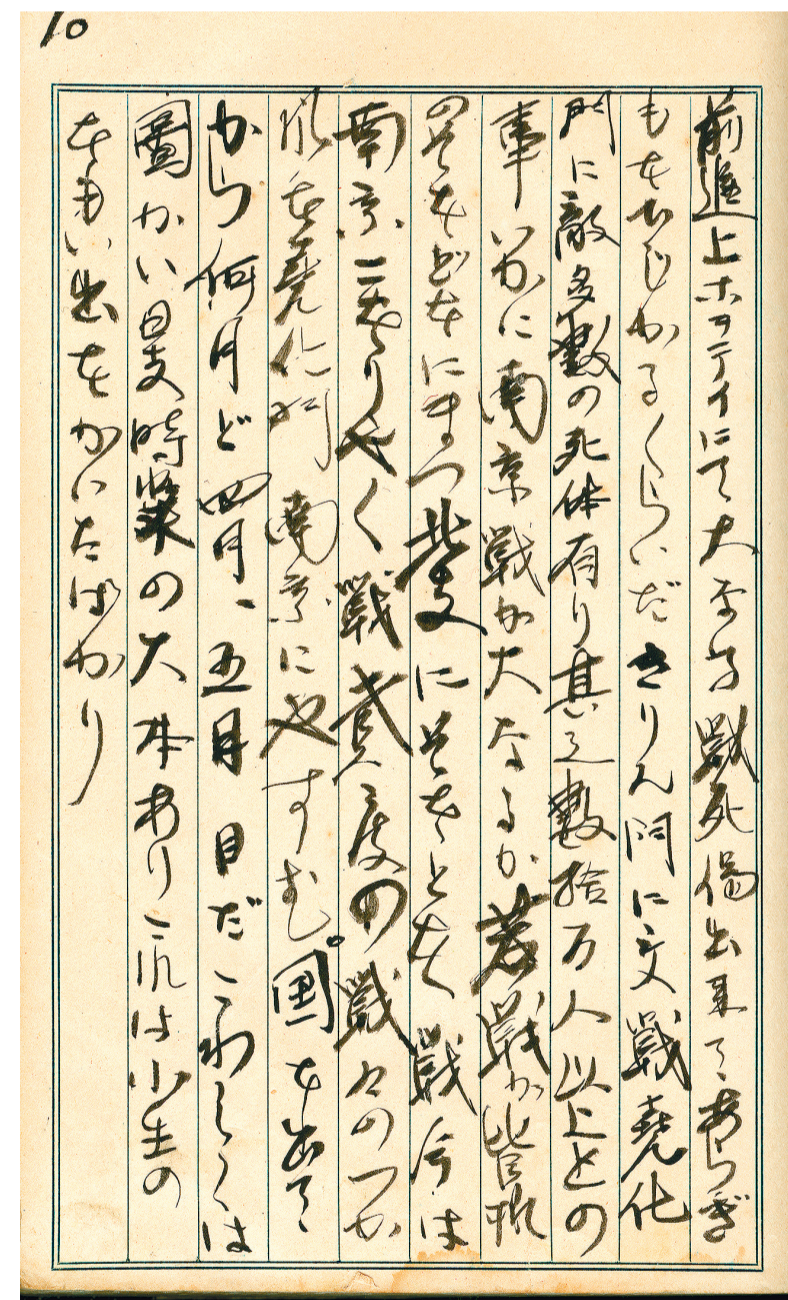 10
前進上ホヲテイにて大なる戦死傷出来てあらぎ
もをひじかるくらいだきりん門に交戦堯化
門に敵多数の死体有り其の数拾万人以上との
事いかに南京戦か大なるか 戦か皆れ
のそをどをにまつ北支にそをとをく戦今は
南京 りやく戦 度の戦々のつか
れを堯化門 南京にやすむ。国を出て
から何月ど四月、五月目だこわしくは
圖かい日支時 の大本あり之れは小生の
をもい出をかいたばかり